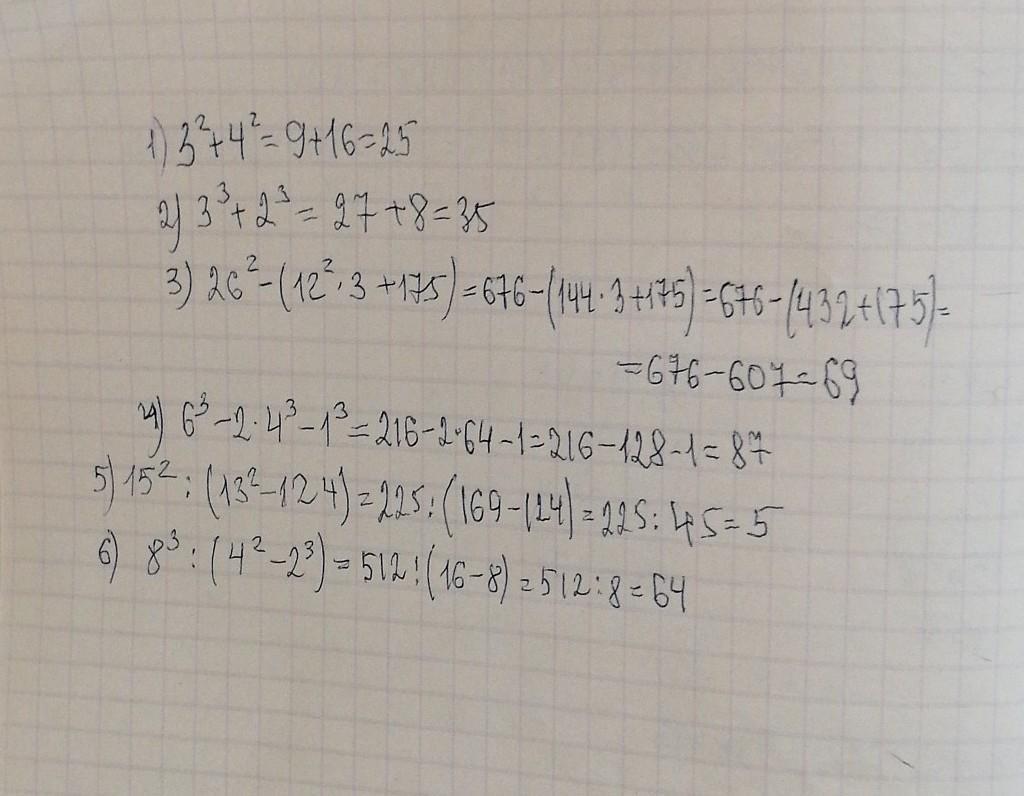 1) 3²+4²=9+16=25
2) 3³+2³=27+8=35
3) 26²-(12²·3+175)=676-(144·3+175)=676-(432+175)=
=676-607=69
4) 6³-2·4³-1³=216-2·64-1=216-128-1=87
5) 15²:(13²-124)=225:(169-124)=225:45=5
6) 8³:(4²-2³)=512:(16-8)=512:8=64